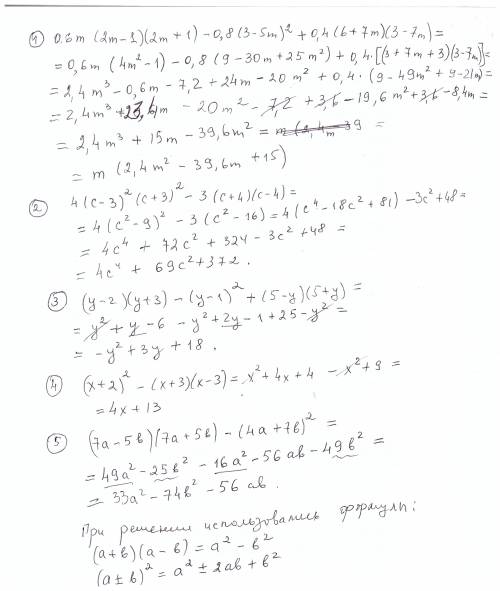 ① 0.6m (2m-1)(2m+1) - 0,8(3-5m)² + 0,4(6+7m)(3-7m)=
= 0,6m (4m²-1) - 0,8 (9-30m+25m²) + 0,4·[(3+7m+3)(3-7m)]=
= 2,4m³ - 0,6m - 7,2 + 24m - 20m² + 0,4·(9-49m²+9-21m)=
= 2,4m³ + 23,4m - 20m² - 7,2 + 3,6 - 19,6m² + 3,6 - 8,4m =
= 2,4m³ + 15m - 39,6m² = m(2,4m 39 =
= m (2,4m² - 39,6m + 15)
② 4(c-3)²(c+3)² - 3(c+4)(c-4)=
= 4(c²-9)² - 3(c²-16) = 4(c⁴-18c²+81) - 3c²+48=
= 4c⁴ + 72c² + 324 - 3c² + 48 =
= 4c⁴ + 69c²+372.
③ (y-2)(y+3) - (y-1)² + (5-y)(5+y) =
= y² + y - 6 - y² + 2y - 1 + 25 - y² =
= -y² + 3y + 18.
④ (x+2)² - (x+3)(x-3) = x² + 4x + 4 - x² + 9 =
= 4x + 13
⑤ (7a-5b)(7a+5b) - (4a+7b)² =
= 49a² - 25b² - 16a² - 56ab - 49b² =
= 33a² - 74b² - 56ab.
При решении использовались формулы:
(a+b)(a-b) = a² - b²
(a±b)² = a² ± 2ab + b²